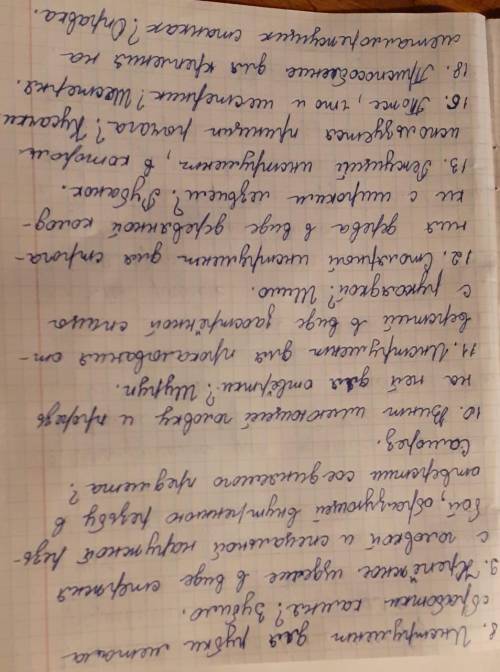 8. Инструмент для рубки металла
обработки камня? Зубило.
9. Крепёжное изделие в виде стержня
с головкой и специальной наружной резь-
бой, образующей внутреннюю резьбу в
отверстии соединяемого предмета?
Саморез.
10. Винт имеющей головку и прорезь
на ней для отвёртки? Шуруп.
11. Инструмент для прокалования от-
верстей в виде заострённой спицы
с рукояткой? Шило.
12. Столярной инструмент для строга-
ния дерева в виде деревянной колод-
ки с широким лезвием? Рубанок.
13. Режущий инструмент, в котором
используется принцип рычага? Кусачки
15. Тоже, что и шестерник? Шестерня.
18. Приспособление для крепления на
металлорежущих станках? Оправка.